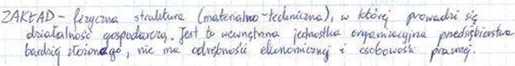 ZAKŁAD - fizyczna struktura (materialno-techniczna), w której prowadzi się
działalność gospodarczą. Jest to wewnętrzna jednostka organizacyjna przedsiębiorstwa
bardziej złożonego, nie ma odrębności ekonomicznej i osobowości prawnej.